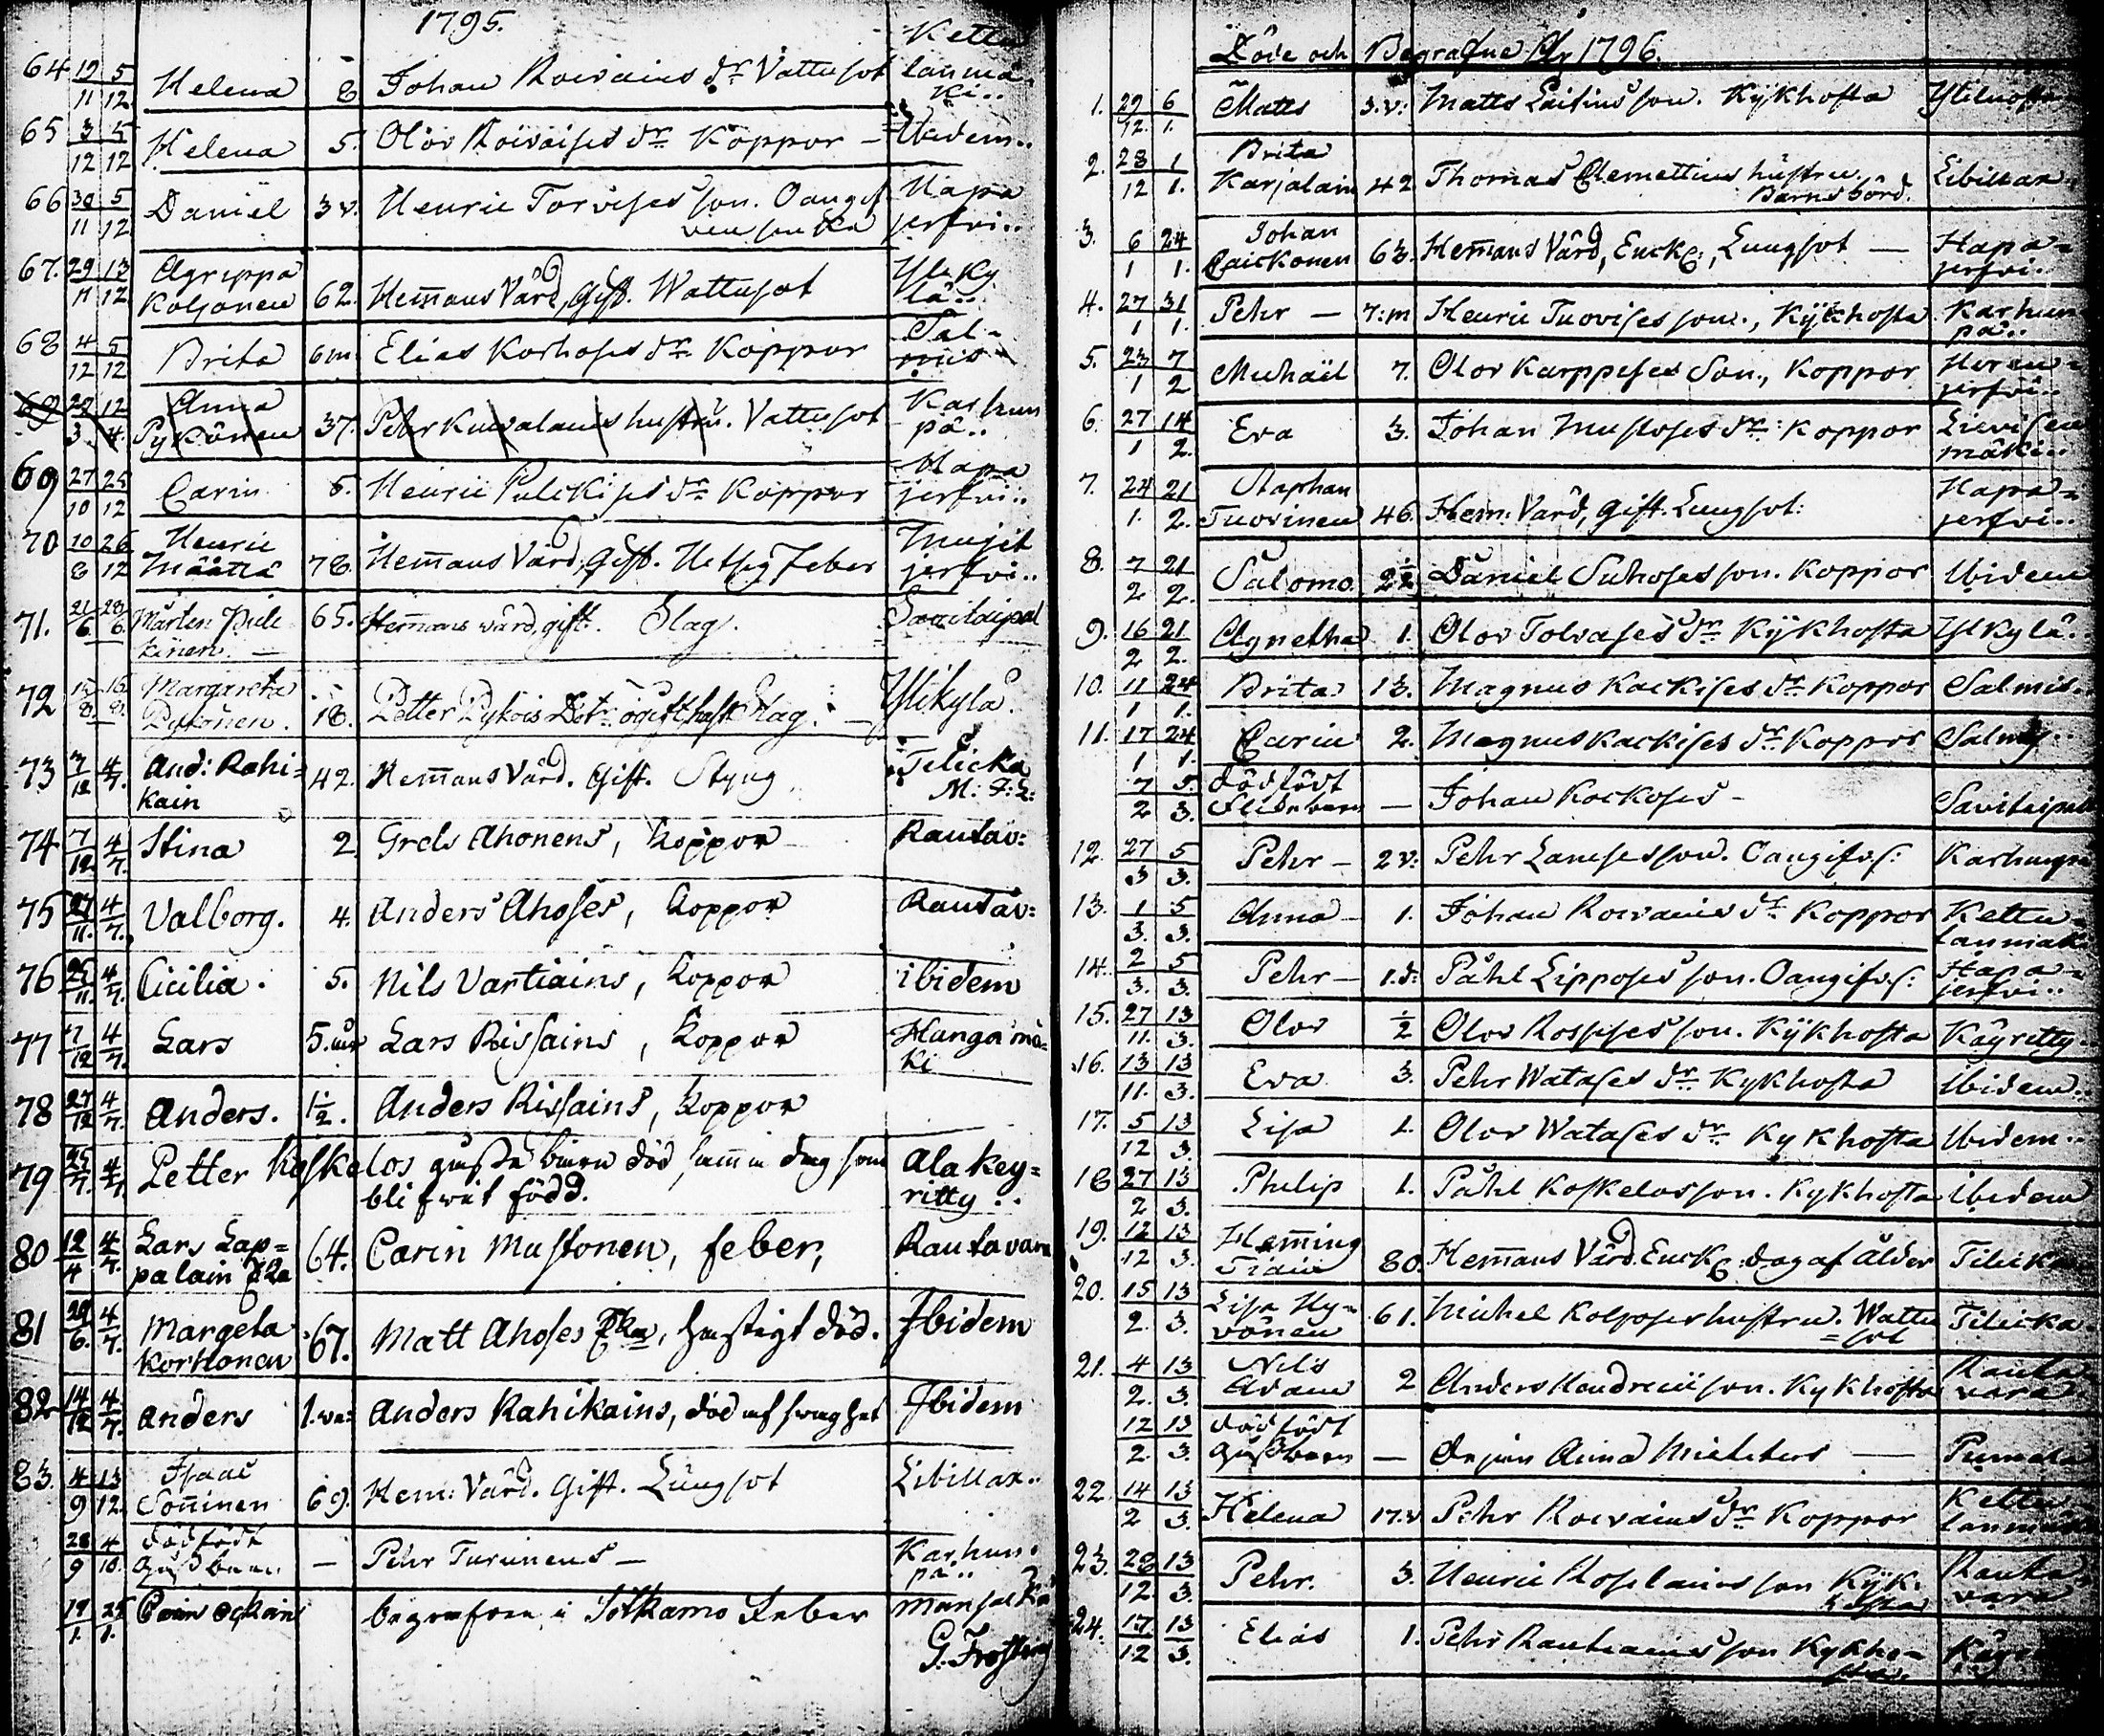 1795.
Kettu
64 19/11 5/12 Helena 8 Johan Roivains dr Vattusot lanmä
ki..
65 3/12 5/12 Helena 5. Olov Roivaises dr Koppor – Ibidem..
66 30/11 5/12 Daniel 3 v. Henric Torvises son. Oangif Hapa
ven siuka jerfvi..
67. 29/11 13/12 Agrippa
Koljonen 62. Hem̄ans Värd, Gift. Wattusot Yleky
lä..
68 4/12 5/12 Brita 6 m. Elias Korhoses dr Koppor Sal-
mis
69 29/3 12/4. Anna
Pykönen 37. Pehr Kuvalains hustru. Vattusot Karhun
pä..
69 27/10 25/12 Carin 5. Henric Pulckises dr Koppor Hapa
jerfvi..
70 10/8 26/12 Henric
Määttä 78. Hem̄ans Värd, Gift. Hetsig Feber Mujet
jerfvi..
71. 21/6 28/6. Mårten Piele
kinen. – 65. Hem̄ans värd, gift. Slag. Savitaipal
72 15/8 16/8. Margareta
Pykönen. 18. Petter Pykois Dotr ogift haft Slag. – Ylikylä.
73 7/12 4/7. And: Rahi-
kain 42. Hem̄ans Värd. Gift. Styng Telicka
M: F: L:
74 7/12. 4/7. Stina 2. Grels Ahonens, Koppor Rautav:
75 27/11. 4/7. Valborg. 4. Anders Ahoses, Koppor Rautav:
76 25/11. 4/7. Cicilia. 5. Nils Vartiains, Koppor ibidem
77 7/12 4/7. Lars 5. Lars Rissains, Koppor Hangamä-
ki
78 27/12 4/7. Anders. 1½. Anders Rissains, Koppor
79 25/7. 4/7. Petter Koskelos gosse barn död, sam̄a dag som Ala key=
blifwit född. ritty..
80 12/4 4/7. Lars Lap=
palain 64. Carin Mustonen, feber, Rautavara
81 29/6. 4/7. Margeta
Korhonen 67. Matt Ahoses Eka, hastigt död. Ibidem
82 14/12 4/7. Anders 1. Anders Rahikains, död af swaghet Ibidem
83. 4/9 13/12. Isaac
Son̄inen 69. Hem: Värd. Gift. Lungsot Libillax..
28/9 4/10. dödfödt
Gossbarn – Pehr Turunens – Karhun
pä..
19/1. 25/1. Carin begrafven i Sotkamo Feber
G. Frosterus
Döde och Begrafne År 1796.
1. 29/12. 6/1. Matts 3. v: Matts Laitins son. Kykhosta
2. 28/12 1/1. Brita
Karjalain 42 Thomas Clemettins hustru. Libillax.
Barnsbörd.
3. 6/1 24/1. Johan
Laickonen 63. Hem̄ans Värd, Enck:, Lungsot – Hapa-
jerfvi..
4. 27/1 31/1. Pehr – 7: m Henric Tuovises son., Kykhosta Karhun
pä..
5. 23/1 7/2 Michaël 7. Olov Karppises Son., Koppor Heren-
jerfvi..
6. 27/1 14/2. Eva 3. Johan Mustoses dr: Koppor Lievisen
mäki..
7. 24/1. 21/2. Staphan
Tuovinen 46. Hem: Värd, gift. Lungsot: Hapa-
jerfvi..
8. 7/2 21/2. Salomo. 2½ Daniel Suhoses son. Koppor Ibidem
9. 16/2 21/2. Agnetha 1. Olov Tolvases dr Kykhosta Ylkylä..
10. 11/1 24/1. Brita 13. Magnus Kackises dr Koppor Salmis.
11. 17/1 24/1. Carin 2. Magnus Kackises dr Koppor Salmis.
7/2 5/3. dödfödt
Flickebarn – Johan Kockoses – Savitaipale
12. 27/3 5/3. Pehr – 2 v. Pehr Lameses son. Oangifv.s: Karhunpä
13. 1/3. 5/3. Anna – 1. Johan Roivains dr Koppor Kettu-
lanmäki
14. 2/3. 5/3. Pehr – 1. d: Påhl Lipposes son. Oangifv.s: Hapa-
jerfvi..
15. 27/11. 13/3. Olov ½ Olov Rossises son. Kykhosta Käyritty.
16. 13/11. 13/3. Eva 3. Pehr Watases dr Kykhosta Ibidem.
17. 5/12 13/3. Lisa 1. Olov Watases dr Kykhosta Ibidem..
18 27/2 13/3. Philip 1. Påhl Koskelos son. Kykhosta Ibidem
19. 12/12 13/3. Hem̄ing
80. Hem̄ans Värd. Enck: dog af Ålder Tilicka
20. 15/2. 13/3. Lisa Hy-
vönen 61. Michel Koljoses hustru. Wattu
=sot Tilicka.
21. 4/2. 13/3. Nils
Adam 2 Anders Hendrecii son. Kykhosta Rauta-
vara
12/2. 13/3. dödfödt
Gossbarn – Anna – Pumala
22. 14/2 13/3. Helena 17. v Pehr Roivains dr Koppor Kettu
lanmäki
23. 28/12 13/3. Pehr. 3. Henric son Kyk-
hosta Rauta-
vara
24. 17/12 13/3. Elias 1. Pehr Rautiains son Kykho-
sta